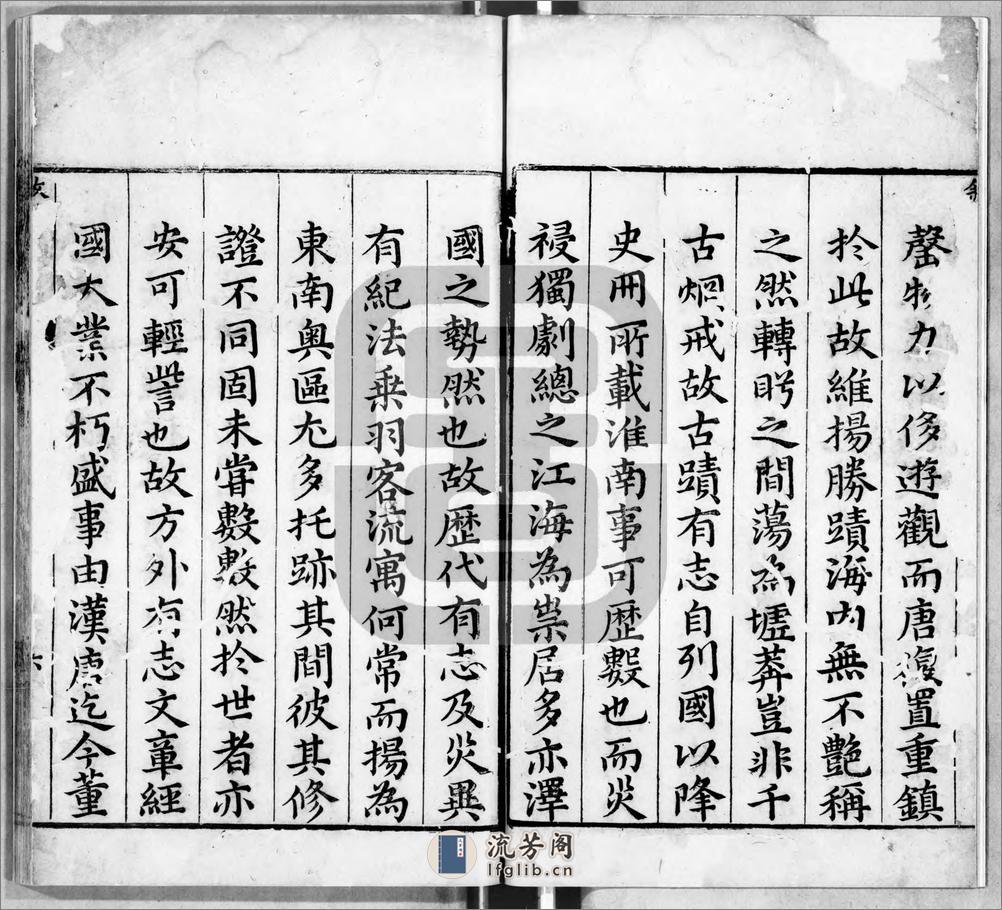 罄物力以侈遊觀而唐復置重鎮
扵此故維揚勝蹟海內無不艷稱
之然轉盻之間蕩為墟莽豈非千
古烱戒故古蹟有志自列國以降
史冊所載淮南事可歷數也而災
祲獨劇總之江海為祟居多亦澤
國之勢然也故歷代有志及災異
有紀法乗羽客流寓何常而揚為
東南奥區尤多托跡其間彼其修
證不同固未甞數數然扵世者亦
安可輕訾也故方外有志文章經
國大業不朽盛事由漢唐迄今董
六
流芳阁
lfglib.cn